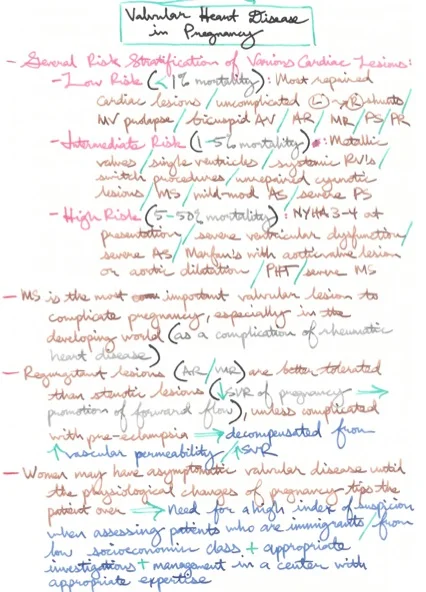 Valvular Heart Disease
in Pregnancy
- Several Risk Stratification of Various Cardiac Lesions:
- Low Risk (<1% mortality): Most repaired
cardiac lesions / uncomplicated L→R shunts /
MV prolapse / bicuspid AV / AR / MR / PS / PR
- Intermediate Risk (1-5% mortality): Metallic
valves / single ventricles / systemic RVs /
switch procedures / unrepaired cyanotic
lesions / MS / mild-mod AS / severe PS
- High Risk (5-50% mortality): NYHA 3-4 at
presentation / severe ventricular dysfunction /
severe AS / Marfan's with aortic valve lesion
or aortic dilatation / PHT / severe MS
- MS is the most important valvular lesion to
complicate pregnancy, especially in the
developing world (as a complication of rheumatic
heart disease)
- Regurgitant lesions (AR/MR) are better tolerated
than stenotic lesions (↓SVR of pregnancy ⇒
promotion of forward flow), unless complicated
with pre-eclampsia ⇒ decompensated from
↑ vascular permeability / ↑SVR
- Women may have asymptomatic valvular disease until
the physiological changes of pregnancy tips the
patient over ⇒ need for a high index of suspicion
when assessing patients who are immigrants / from
low socioeconomic class + appropriate
investigations + management in a center with
appropriate expertise